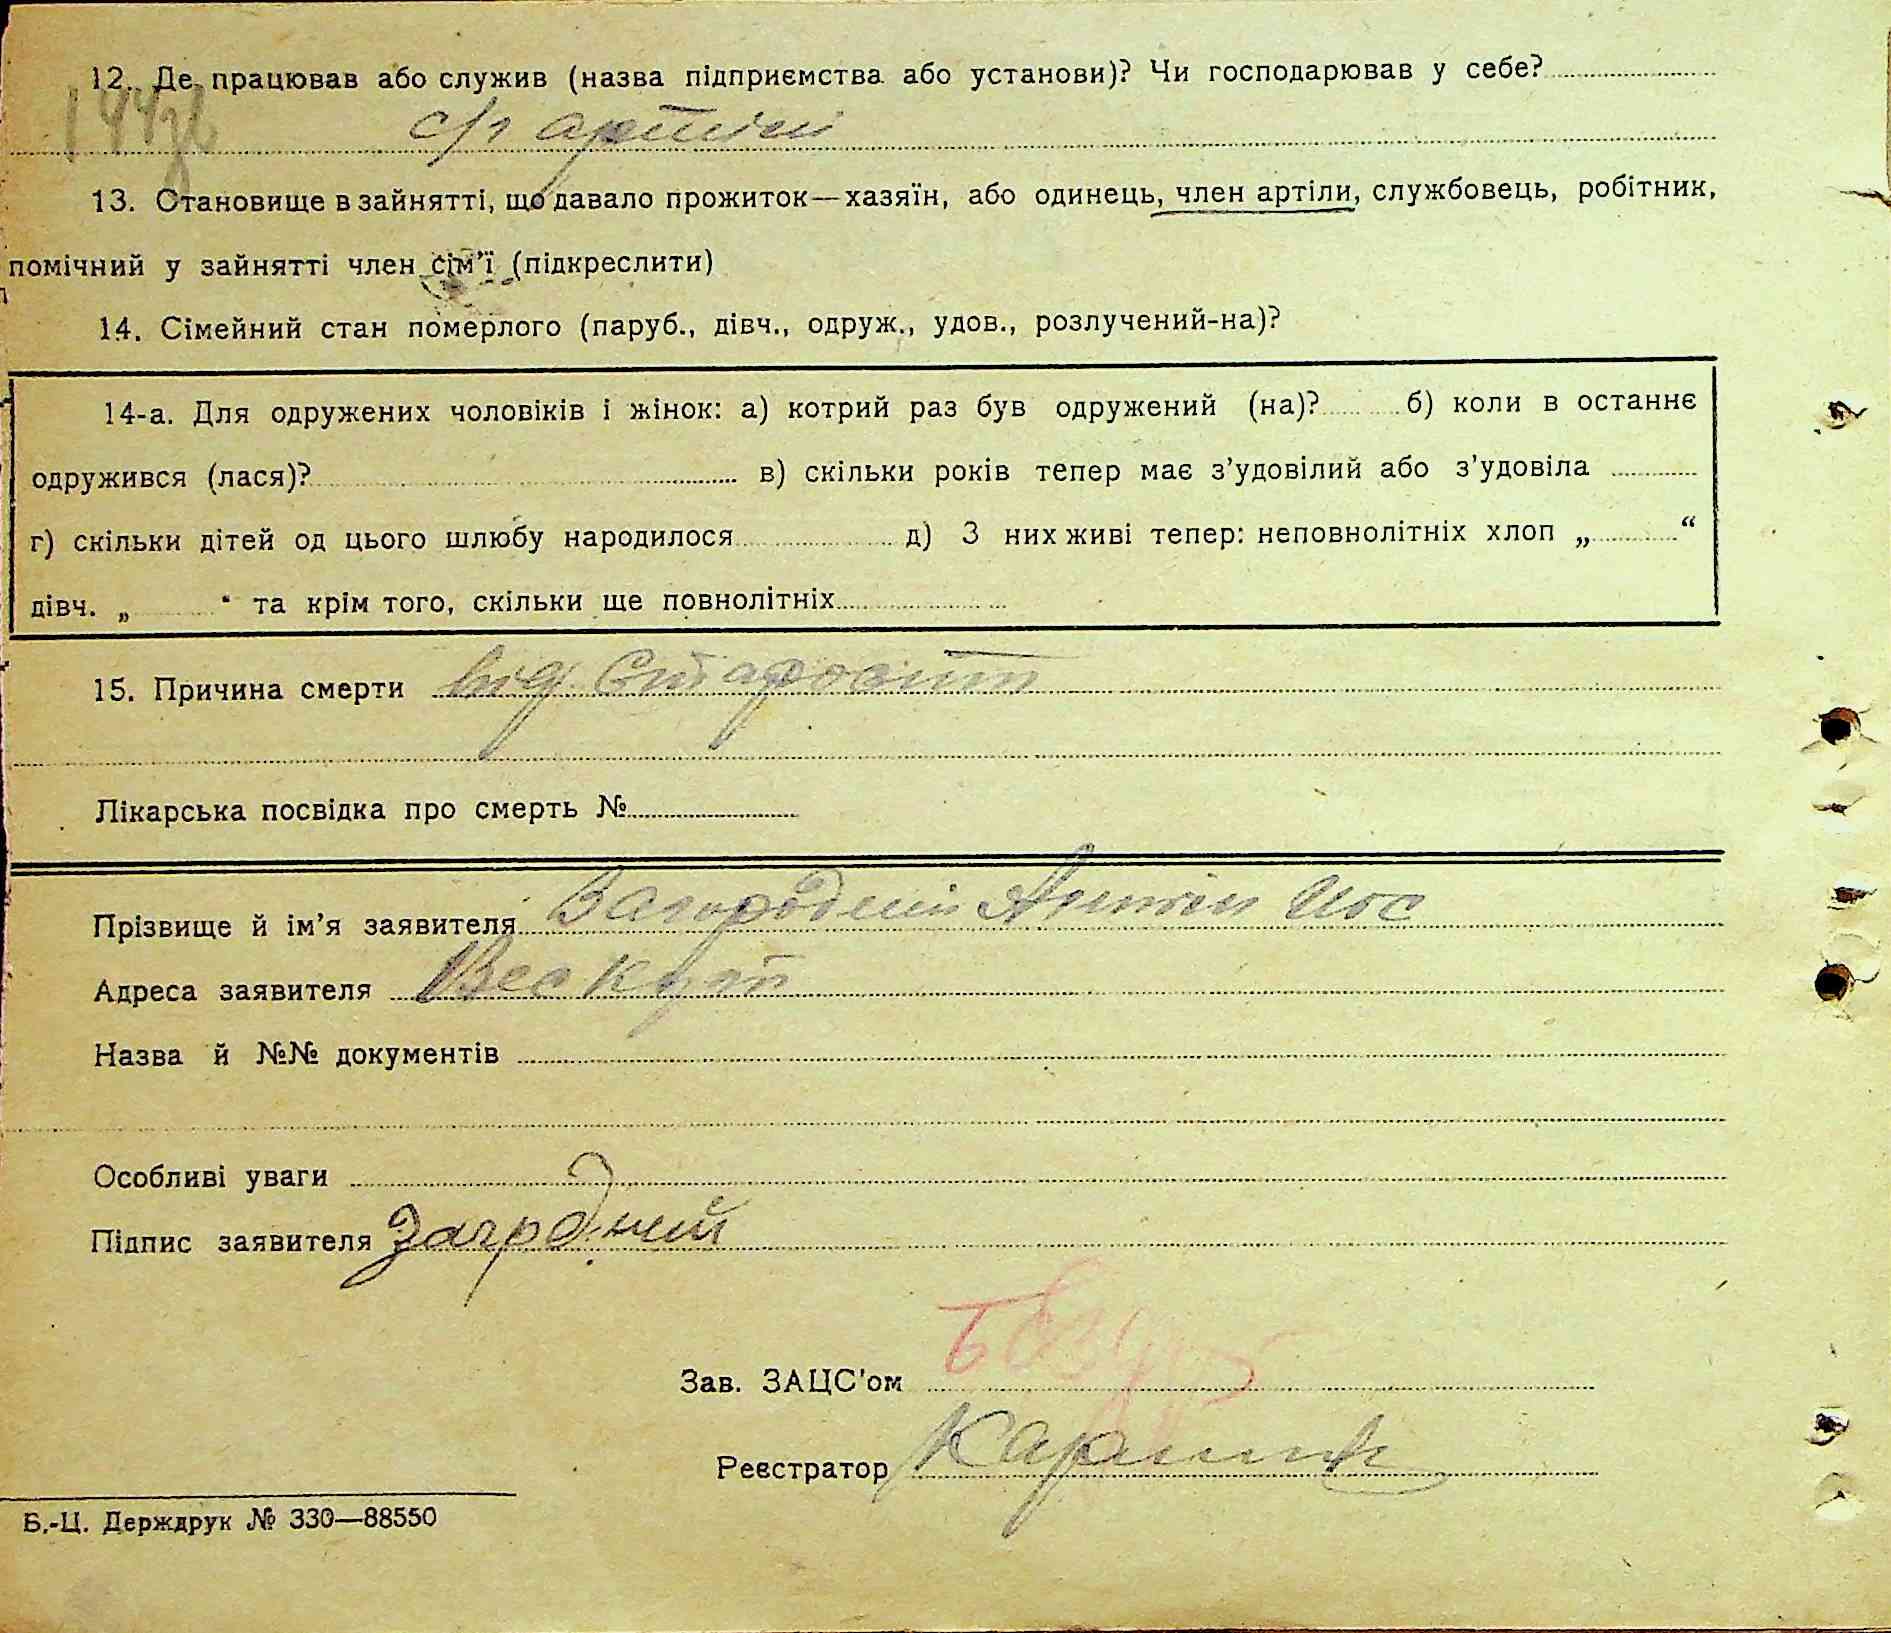 12. Де працював або служив (назва підприємства або установи)? Чи господарював у себе?
с/г артілі
13. Становище в зайнятті, що давало прожиток—хазяїн, або одинець, член артіли, службовець, робітник,
помічний у зайнятті член сім'ї (підкреслити)
14. Сімейний стан померлого (паруб., дівч., одруж., удов., розлучений-на)?
14-а. Для одружених чоловіків і жінок: а) котрий раз був одружений (на)? б) коли в останнє
одружився (лася)? в) скільки років тепер має з'удовілий або з'удовіла
г) скільки дітей од цього шлюбу народилося д) З них живі тепер: неповнолітніх хлоп „ “
дівч. „ “ та крім того, скільки ще повнолітніх
15. Причина смерти від старости
Лікарська посвідка про смерть №
Прізвище й ім'я заявителя Загородній Антін Иос
Адреса заявителя Вес Кут
Назва й №№ документів
Особливі уваги
Підпис заявителя Загродний
Зав. ЗАЦС'ом
Реєстратор
Б.-Ц. Держдрук № 330—88550